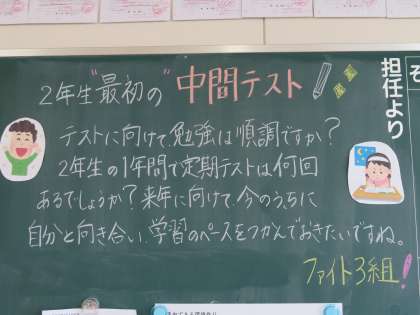 2年生"最初の"中間テスト
テストに向けて、勉強は順調ですか?
2年生の1年間で定期テストは何回
あるでしょうか?来年に向けて、今のうちに
自分と向き合い、学習のペースをつかんでおきたいですね。
ファイト3組!
担任より
そ